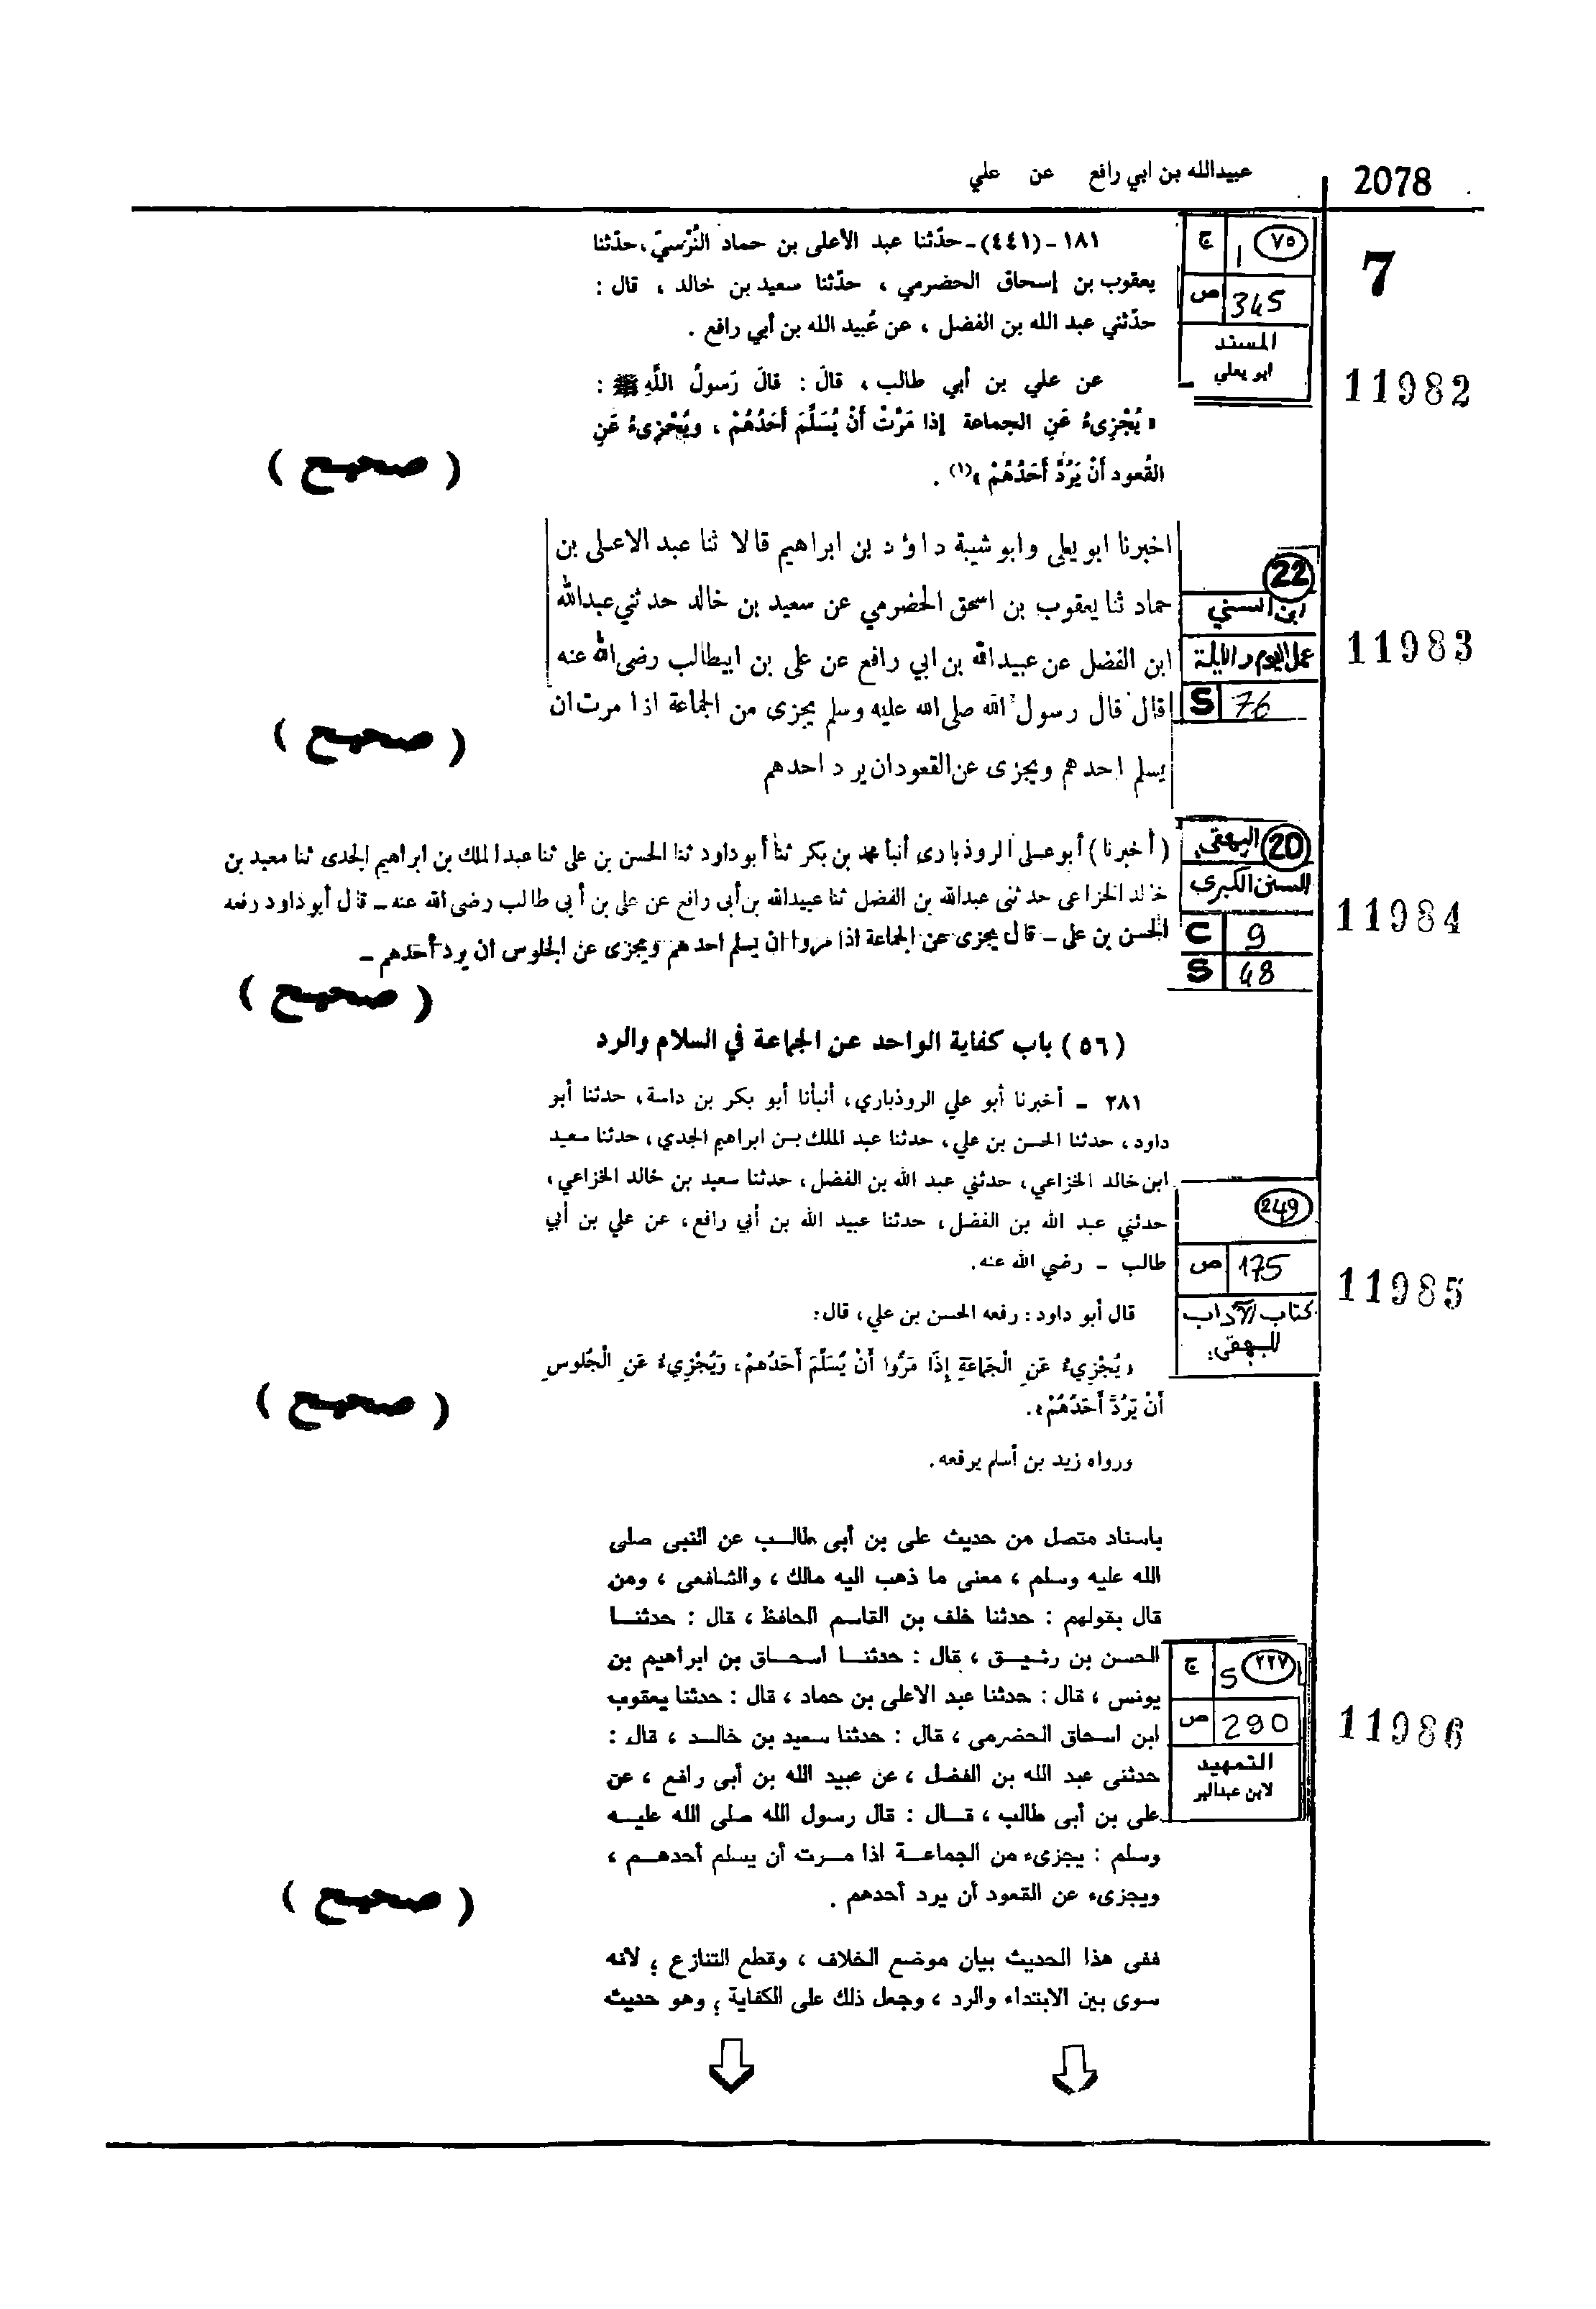 2078
عبيدالله بن ابي رافع عن علي
7
٧٥
ج 1
ص 345
المسند
ابو يعلي
11982
١٨١ - (٤٤١) - حدّثنا عبد الأعلى بن حماد النَّرْسيّ، حدّثنا
يعقوب بن إسحاق الحضرمي ، حدّثنا سعيد بن خالد ، قال :
حدّثني عبد الله بن الفضل ، عن عُبيد الله بن أبي رافع .
عن علي بن أبي طالب ، قالَ : قالَ رَسولُ اللَّهِ ﷺ :
« يُجْزِىءُ عَنِ الجماعة إذا مَرَّتْ أَنْ يُسَلِّمَ أَحَدُهُمْ ، ويُجْزِىءُ عَنِ
القُعود أَنْ يَرُدَّ أَحَدُهُمْ »(١) .
( صحيح )
22
ابن السني
عمل اليوم والليلة
S 76
11983
اخبرنا ابو يعلى وابو شيبة داؤد بن ابراهيم قالا ثنا عبد الاعلى بن
حماد ثنا يعقوب بن اسحق الحضرمي عن سعيد بن خالد حدثني عبدالله
ابن الفضل عن عبيدالله بن ابي رافع عن على بن ابيطالب رضى الله عنه
قال قال رسول الله صلى الله عليه وسلم يجزى من الجماعة اذا مرت ان
يسلم احدهم ويجزى عن القعود ان يرد احدهم
( صحيح )
20
البيهقي
السنن الكبرى
C 9
S 48
11984
( أخبرنا ) أبو على الروذبارى أنبأ محمد بن بكر ثنا أبو داود ثنا الحسن بن على ثنا عبد الملك بن ابراهيم الجدى ثنا سعيد بن
خالد الخزاعى حدثنى عبدالله بن الفضل ثنا عبيدالله بن أبى رافع عن على بن أبى طالب رضى الله عنه ـ قال أبو داود رفعه
الحسن بن على ـ قال يجزى عن الجماعة اذا مروا ان يسلم احدهم ويجزى عن الجلوس ان يرد أحدهم ـ
( صحيح )
( ٥٦ ) باب كفاية الواحد عن الجماعة في السلام والرد
٢٨١ - أخبرنا أبو علي الروذباري، أنبأنا أبو بكر بن داسة، حدثنا أبو
داود، حدثنا الحسن بن علي، حدثنا عبد الملك بن ابراهيم الجدي، حدثنا سعيد
ابن خالد الخزاعي، حدثني عبد الله بن الفضل، حدثنا سعيد بن خالد الخزاعي،
حدثني عبد الله بن الفضل، حدثنا عبيد الله بن أبي رافع، عن علي بن أبي
طالب - رضي الله عنه.
249
ص 175
كتاب الآداب
للبيهقي
11985
قال أبو داود: رفعه الحسن بن علي، قال:
« يُجْزِيءُ عَنِ الْجَمَاعَةِ إِذَا مَرُّوا أَنْ يُسَلِّمَ أَحَدُهمْ، وَيُجْزِيءُ عَنِ الْجُلوسِ
أَنْ يَرُدَّ أَحَدُهُمْ».
( صحيح )
ورواه زيد بن أسلم يرفعه.
باسناد متصل من حديث على بن أبى طالب عن النبى صلى
الله عليه وسلم ، معنى ما ذهب اليه مالك ، والشافعى ، ومن
قال بقولهم : حدثنا خلف بن القاسم الحافظ ، قال : حدثنا
الحسن بن رشيق ، قال : حدثنا اسحاق بن ابراهيم بن
يونس ، قال : حدثنا عبد الاعلى بن حماد ، قال : حدثنا يعقوب
ابن اسحاق الحضرمى ، قال : حدثنا سعيد بن خالد ، قال :
حدثنى عبد الله بن الفضل ، عن عبيد الله بن أبى رافع ، عن
على بن أبى طالب ، قال : قال رسول الله صلى الله عليه
وسلم : يجزىء من الجماعة اذا مرت أن يسلم أحدهم ،
ويجزىء عن القعود أن يرد أحدهم .
٢٢٧
ج 5
ص 290
التمهيد
لابن عبدالبر
11986
( صحيح )
ففى هذا الحديث بيان موضع الخلاف ، وقطع التنازع ؛ لانه
سوى بين الابتداء والرد ، وجعل ذلك على الكفاية ؛ وهو حديث